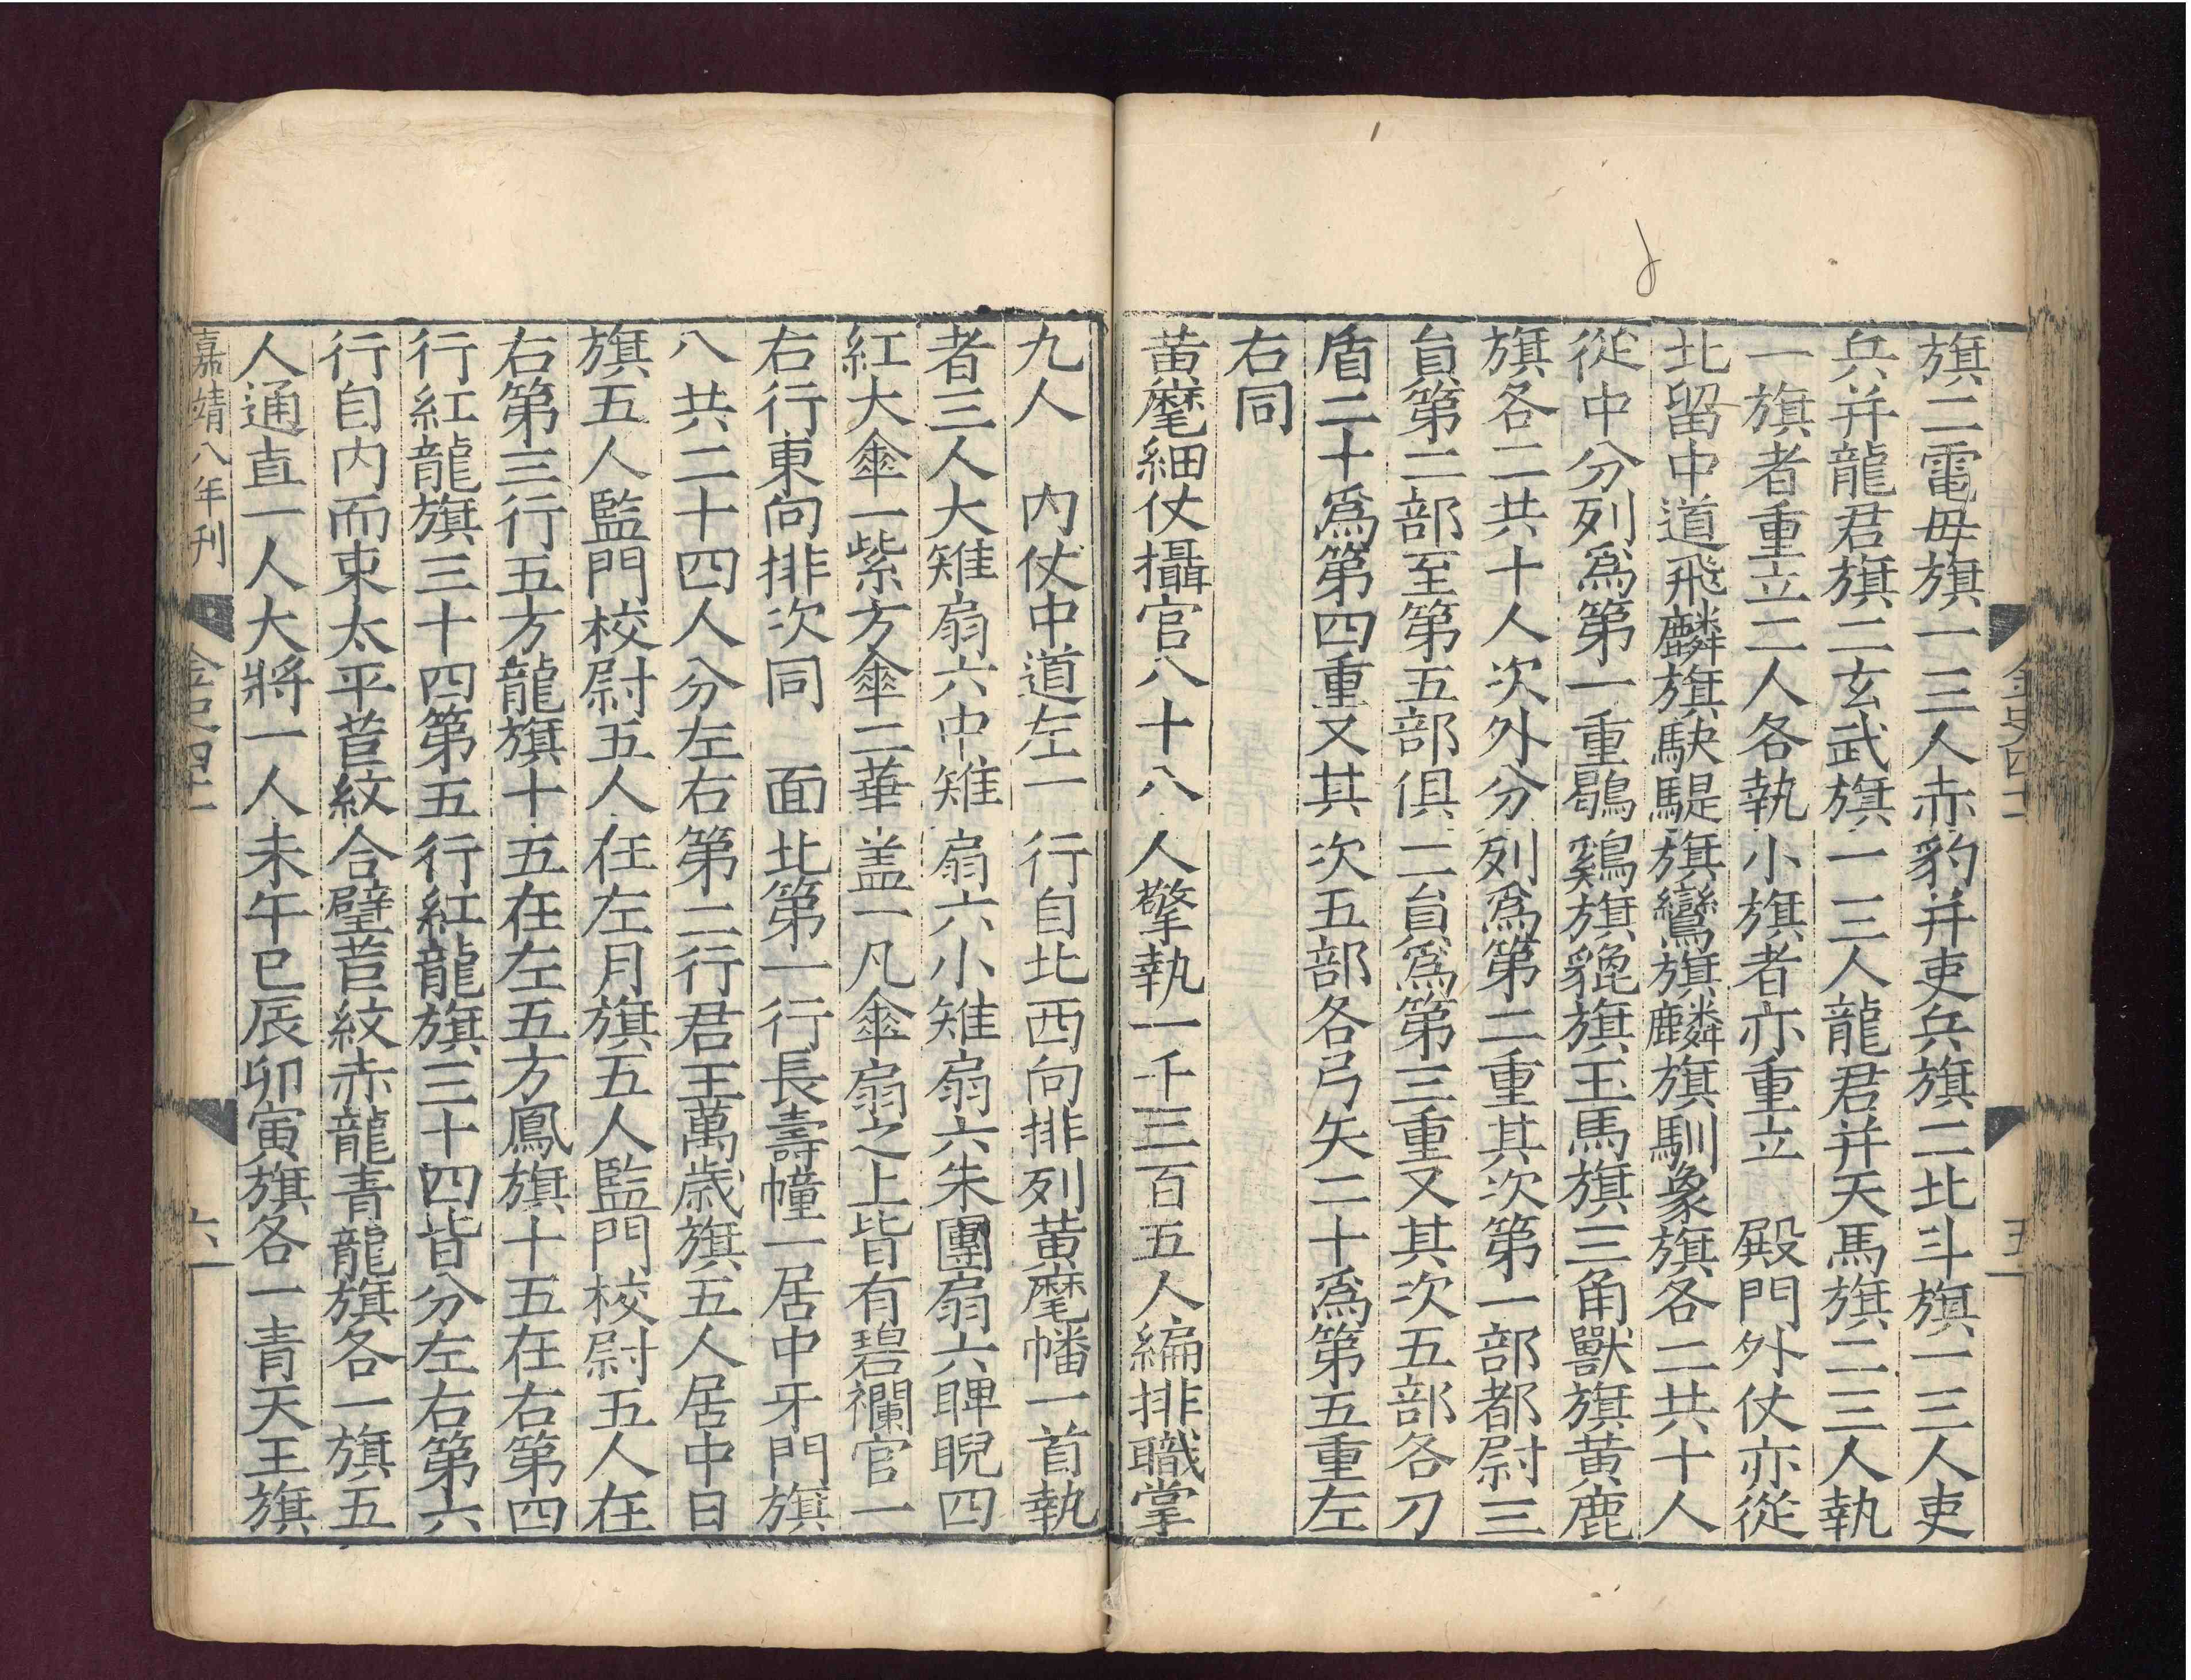 旗二電母旗一三人赤豹并吏兵旗二北斗旗一三人吏
兵并龍君旗二玄武旗一三人龍君并天馬旗二三人執
一旗者重立二人各執小旗者亦重立 殿門外仗亦從
北留中道飛麟旗駃騠旗鸞旗麟旗馴象旗各二共十人
從中分列爲第一重鶡鷄旗貔旗玉馬旗三角獸旗黃鹿
旗各二共十人次外分列爲第二重其次第一部都尉三
員第二部至第五部俱二員爲第三重又其次五部各刀
盾二十爲第四重又其次五部各弓矢二十爲第五重左
右同
黃麾細仗攝官八十八人擎執一千三百五人編排職掌
九人 内仗中道左一行自北西向排列黃麾幡一首執
者三人大雉扇六中雉扇六小雉扇六朱團扇六睥睨四
紅大傘一紫方傘二華盖一凡傘扇之上皆有碧襴官一
右行東向排次同 面北第一行長壽幢一居中牙門旗
八共二十四人分左右第二行君王萬歲旗五人居中日
旗五人監門校尉五人在左月旗五人監門校尉五人在
右第三行五方龍旗十五在左五方鳳旗十五在右第四
行紅龍旗三十四第五行紅龍旗三十四皆分左右第六
行自内而東太平萻紋合璧萻紋赤龍青龍旗各一旗五
人通直一人大將一人未午巳辰卯寅旗各一青天王旗
嘉靖八年刊
金史四十二
五
六